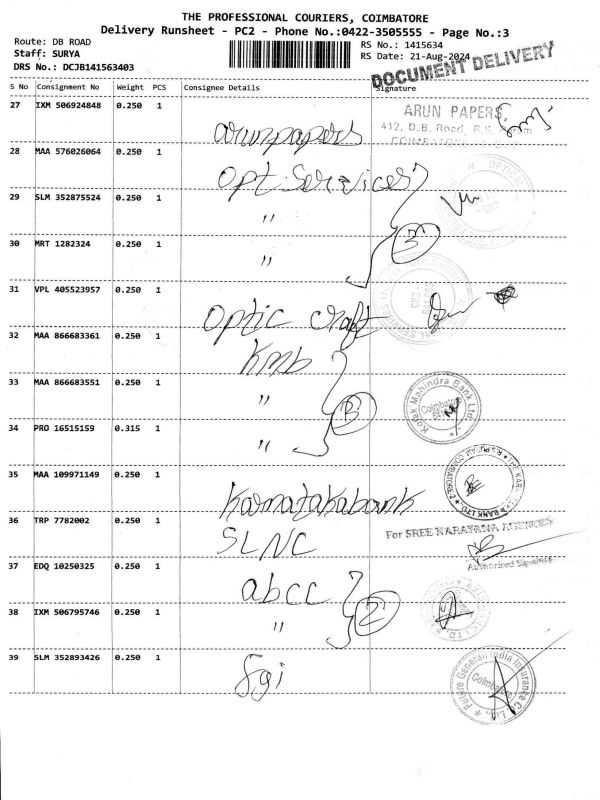 THE PROFESSIONAL COURIERS, COIMBATORE
Delivery Runsheet - PC2 - Phone No.:0422-3505555 - Page No.:3
Route: DB ROAD
Staff: SURYA
DRS No.: DCJB141563403
RS No.: 1415634
RS Date: 21-Aug-2024
DOCUMENT DELIVERY
S No Consignment No Weight PCS Consignee Details Signature
27 IXM 506924848 0.250 1
arunpapers
ARUN PAPERS
412, D.B. Road, R.S.
COIMBATORE
28 MAA 576026064 0.250 1
Opt Services
29 SLM 352875524 0.250 1
"
3
30 MRT 1282324 0.250 1
"
31 VPL 405523957 0.250 1
Optic craft
32 MAA 866683361 0.250 1
kmb
33 MAA 866683551 0.250 1
"
3
Kotak Mahindra Bank Ltd
Coimbatore
34 PRO 16515159 0.315 1
"
35 MAA 109971149 0.250 1
Karnatakabank
BANK LTD
36 TRP 7782002 0.250 1
SLNC
For SREE NARAYANA AGENCIES
Authorised Signatory
37 EDQ 10250325 0.250 1
abcc
38 IXM 506795746 0.250 1
"
2
39 SLM 352893426 0.250 1
fgi
Future Generali India Insurance Co. Ltd.
Coimbatore